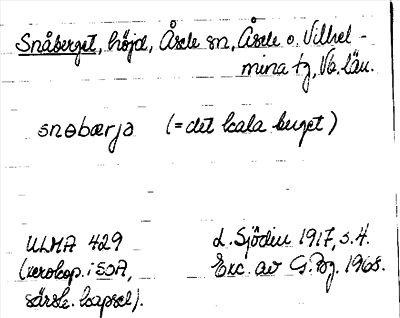 Snåberget, höjd, Åsele sn, Åsele o. Vilhel-
mina tg, Vb. län.
snɵbærja (= det kala berget)
ULMA 429
(xerokop. i SOA,
särsk. kapsel).
L. Sjödin 1917, s. 4.
Exc. av G. Bg. 1968.